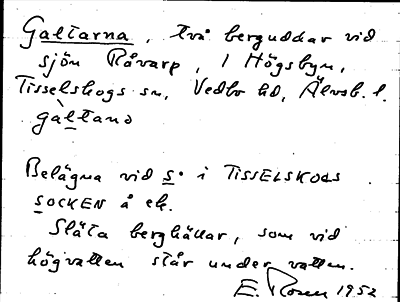 Galtarna, två berguddar vid
sjön Råvarp, i Högsbyn,
Tisselskogs sn, Vedbo hd, Älvsb. l.
gàltanɔ
Belägna vid s. i TISSELSKOGS
SOCKEN å ek.
Släta berghällar, som vid
högvatten står under vatten.
E. Rosen 1952